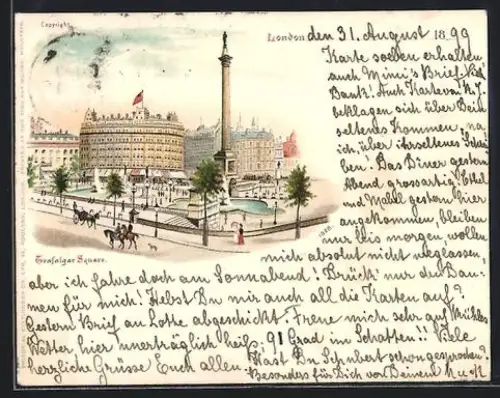 Copyright.
London den 31. August 1899
Karte soeben erhalten
auch Mimi's Brief. Viel
Dank! Auch Karte von N.J.
beklagen sich über Dein
seltenes Kommen, na,
ich, über ihr seltenes Schrei-
ben. Das Diner gestern
Abend grossartig! Ethel
und Mabel gestern hier
angekommen, bleiben
nur bis morgen, wollen
mich absolut nicht weglassen,
Trafalgar Square.
aber ich fahre doch am Sonnabend! Drück' nur die Dau-
men für mich! Hebst Du mir auch all die Karten auf?
Gestern Brief an Lotte abgeschickt. Freue mich sehr auf
Wetter hier unerträglich heiß, 91 Grad im Schatten!! Viele
herzliche Grüsse Euch allen. Hast Du Schubert schon gesprochen?
Besonders für Dich von Deinem